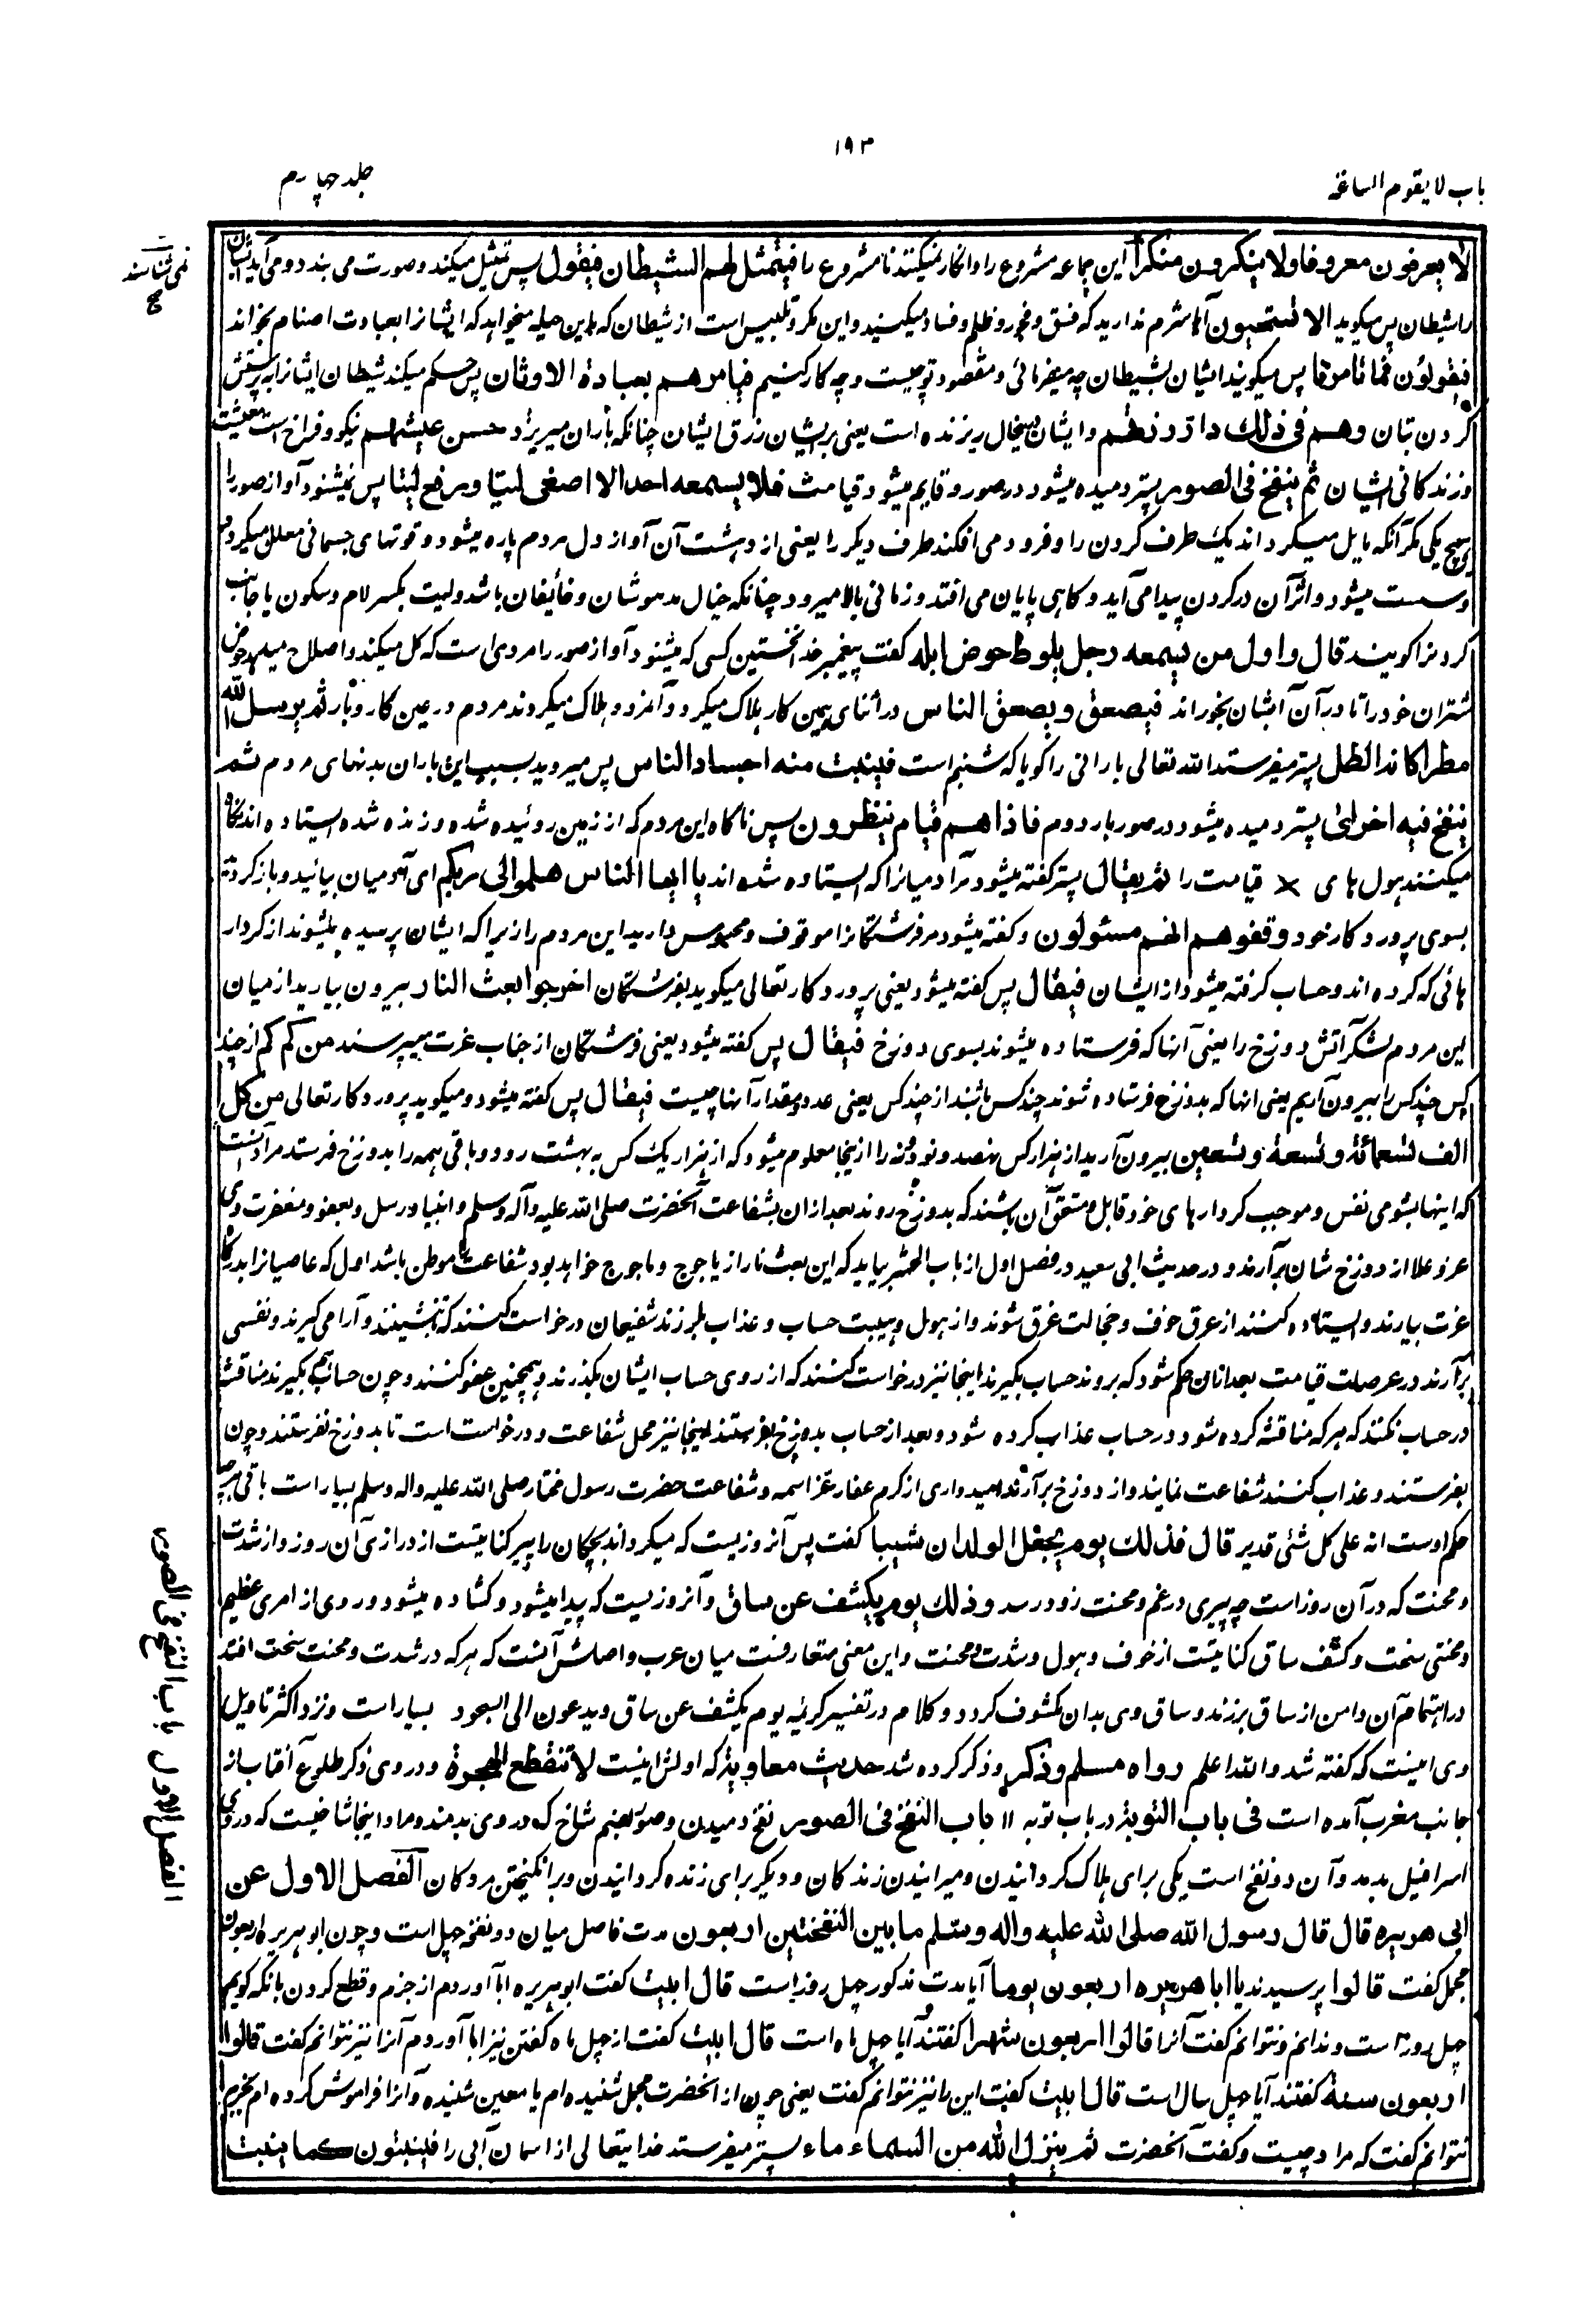 ۱۹۳
باب لا یقوم الساعة
جلد چهارم
نمی شناسند
لا یعرفون معروفا ولا ینکرون منکرا این جماعه مشروع را و انکار نمیکنند نامشروع را فیتمثل لهم الشیطان فیقول پس تمثیل میکند و صورت می بندد و می آید ایشان
را شیطان پس میگوید الا تستحیون آیا شرم ندارید که فسق و فجور و ظلم و فساد میکنید و این مکر و تلبیس است از شیطان که باین حیله میخواهد که ایشانرا بعبادت اصنام بخواند
فیقولون فما تامرنا پس میگویند ایشان بشیطان چه میفرمائی و مقصود تو چیست و چه کار کنیم فیامرهم بعبادة الاوثان پس حکم میکند شیطان ایشانرا به پرستش
کردن بتان وهم فی ذلک دار رزقهم و ایشان بهمحال ریزنده است یعنی بر ایشان رزق ایشان چنانکه باران میریزد حسن عیشهم نیکو و فراخ است معیشت
و زندگانی ایشان ثم ینفخ فی الصور پستر دمیده میشود در صور و قایم میشود قیامت فلا یسمعه احد الا اصغی لیتا و رفع لیتا پس نمیشنود آواز صور را
هیچ یکی مگر آنکه مایل میگرداند یک طرف گردن را و فرود می افکند طرف دیگر را یعنی از دهشت آن آواز دل مردم پاره میشود و قوتهای جسمانی معطل میگردد
و سست میشود و اثر آن در گردن پیدا می آید و گاهی پایان می افتد و زمانی بالا میرود چنانکه حال مدهوشان و خائیفان باشد ولیت بکسر لام و سکون یا جانب
گردنرا گویند قال و اول من یسمعه رجل یلوط حوض ابله گفت پیغمبر خدا نخستین کسی که میشنود آواز صور را مردی است که گل میکند و اصلاح میدهد حوض
شتران خود را تا در آن آبشان بخوراند فیصعق و یصعق الناس در اثنای همین کار هلاک میگردد آنمرد و هلاک میگردند مردم در عین کار و بار ثم یرسل الله
مطرا کانه الطل پستر میفرستد الله تعالی بارانی را گویا که شبنم است فینبت منه اجساد الناس پس میروید بسبب این باران بدنهای مردم ثم
ینفخ فیه اخرای پستر دمیده میشود در صور بار دوم فاذا هم قیام ینظرون پس ناگاه این مردم که از زمین روئیده شده و زنده شده ایستاده اند نگاه
میکنند هول های قیامت را ثم یقال پستر گفته میشود مر آدمیانرا که ایستاده شده اند یا ایها الناس هلموا الی ربکم ای آدمیان بیائید و باز گردید
بسوی پروردگار خود وقفوهم انهم مسئولون و گفته میشود مر فرشتگانرا موقوف و محبوس دارید این مردم را زیرا که ایشان پرسیده میشوند از کردار
هائی که کرده اند و حساب گرفته میشود از ایشان فیقال پس گفته میشود یعنی پروردگار تعالی میگوید بفرشتگان اخرجوا بعث النار بیرون بیارید از میان
این مردم لشکر آتش دوزخ را یعنی آنها که فرستاده میشوند بسوی دوزخ فیقال پس گفته میشود یعنی فرشتگان از جناب عزت میپرسند من کم کم از چند
کس چند کس را بیرون آریم یعنی انها که بدوزخ فرستاده شوند چند کس باشند از چند کس یعنی عدد و مقدار آنها چیست فیقال پس گفته میشود و میگوید پروردگار تعالی من کل
الف تسعمائة وتسعة وتسعین بیرون آرید از هزار کس نهصد و نود و نه را ازینجا معلوم میشود که از هزار یک کس به بهشت رود و باقی همه را بدوزخ فرستد مراد انست
که اینها بشومی نفس و موجب کردارهای خود قابل و مستحق آن باشند که بدوزخ روند بعد ازان بشفاعت آنحضرت صلی الله علیه وآله وسلم و انبیا و رسل و بعفو و مغفرت وی
عز و علا از دوزخ شان برآرند و در حدیث ابی سعید در فصل اول از باب الحشر بیاید که این بعث نار از یاجوج و ماجوج خواهد بود شفاعت را موطن باشد اول که عاصیانرا بدرگاه
عزت بیارند و ایستاده کنند از عرق خوف و خجالت غرق شوند و از هول و هیبت حساب و عذاب بلرزند شفیعان درخواست کنند که بنشینند و آرامی گیرند و نفسی
برآرند در عرصات قیامت بعد ازان حکم شود که بروند حساب بگیرند اینجا نیز درخواست کنند که از روی حساب ایشان بگذرند و همچنین عفو کنند و چون حساب هم بگیرند مناقشه
در حساب نکنند که هر که مناقشه کرده شود در حساب عذاب کرده شود و بعد از حساب بدوزخ بفرستند اینجا نیز محل شفاعت و درخواست است تا بدوزخ نفرستند و چون
بفرستند و عذاب کنند شفاعت نمایند و از دوزخ برآرند امیدواری از کرم غفار عز اسمه و شفاعت حضرت رسول مختار صلی الله علیه واله وسلم بسیار است باقی هر چه
حکم اوست انه علی کل شئی قدیر قال فذلک یوم یجعل الولدان شیبا گفت پس آنروزیست که میگرداند بچگان را پیر کنایتست از درازی آن روز و از شدت
و محنت که در آن روز است چه پیری در غم و محنت زود رسد وذلک یوم یکشف عن ساق و آنروزیست که پیدا میشود و گشاده میشود در وی از امری عظیم
و محنتی سخت و کشف ساق کنایتست از خوف و هول و شدت و محنت و این معنی متعارفست میان عرب و اصلش آنست که هر که در شدت و محنت سخت افتد
در اهتمام آن دامن از ساق برزند و ساق وی بدان مکشوف گردد و کلام در تفسیر کریمه یوم یکشف عن ساق ویدعون الی السجود بسیار است و نزد اکثر تاویل
وی اینست که گفته شد و الله اعلم رواه مسلم وذکر و ذکر کرده شد حدیث معاویة که اولش اینست لا تنقطع الهجرة و در وی ذکر طلوع آفتاب از
جانب مغرب آمده است فی باب التوبة در باب توبه ۱۱ باب النفخ فی الصور نفخ دمیدن و صور بضم شاخ که در وی بدمند و مراد اینجا شاخیست که در وی
اسرافیل بدمد و آن دو نفخ است یکی برای هلاک گردانیدن و میرانیدن زندگان و دیگر برای زنده گردانیدن و برانگیختن مردگان الفصل الاول عن
ابی هریره قال قال رسول الله صلی الله علیه واله وسلم ما بین النفختین اربعون مدت فاصل میان دو نفخه چهل است و چون ابو هریره اربعون
مجمل گفت قالوا پرسیدند یا ابا هریره اربعون یوما آیا مدت مذکور چهل روز است قال ابیت گفت ابو هریره ابا آوردم از جزم و قطع کردن بانکه گویم
چهل روز است و ندانم و نتوانم گفت آنرا قالوا اربعون شهرا گفتند آیا چهل ماه است قال ابیت گفت از چهل ماه گفتن نیز ابا آوردم آنرا نیز نتوانم گفت قالوا
اربعون سنة گفتند آیا چهل سال است قال ابیت گفت این را نیز نتوانم گفت یعنی چون از انحضرت مجمل شنیده ام یا معین شنیده و آنرا فراموش کرده ام بجزم
نتوانم گفت که مراد چیست و گفت آنحضرت ثم ینزل الله من السماء ماء پستر میفرستد خدایتعالی از اسمان آبی را فینبتون کما ینبت
الفصل الاول باب النفخ فی الصور